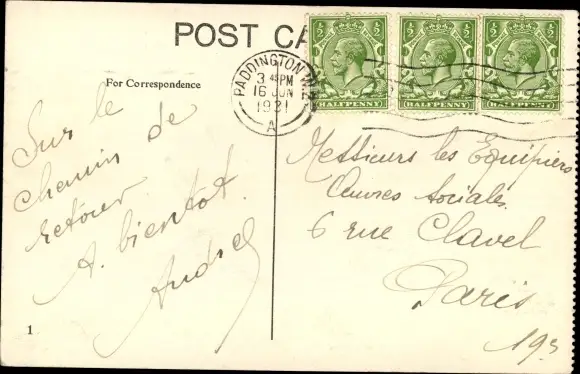 POST CA
For Correspondence
Sur le
chemin de
retour
A. bientot.
1
PADDINGTON W.2.
3 45 PM
16 JUN
1931
A
½ ½
HALFPENNY
½ ½
HALFPENNY
½ ½
HALFPENNY
Messieurs les Equipiers
Œuvres Sociales.
6 rue Clavel
Paris
19s